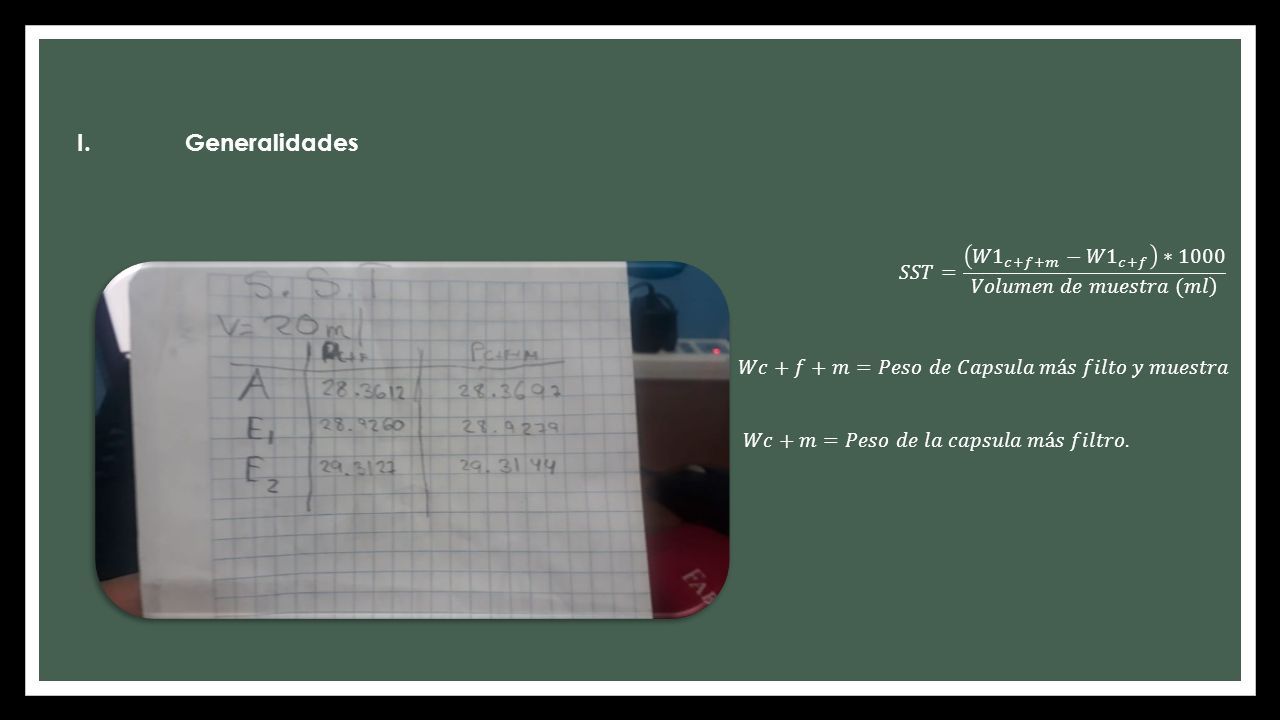 I. Generalidades
S.S.T
V=20ml
Pc+F Pc+F+M
A 28.3612 28.3697
E1 28.9260 28.9279
E2 29.3127 29.3144
FAB
SST = (W1c+f+m − W1c+f) * 1000 / Volumen de muestra (ml)
Wc + f + m = Peso de Capsula más filto y muestra
Wc + m = Peso de la capsula más filtro.